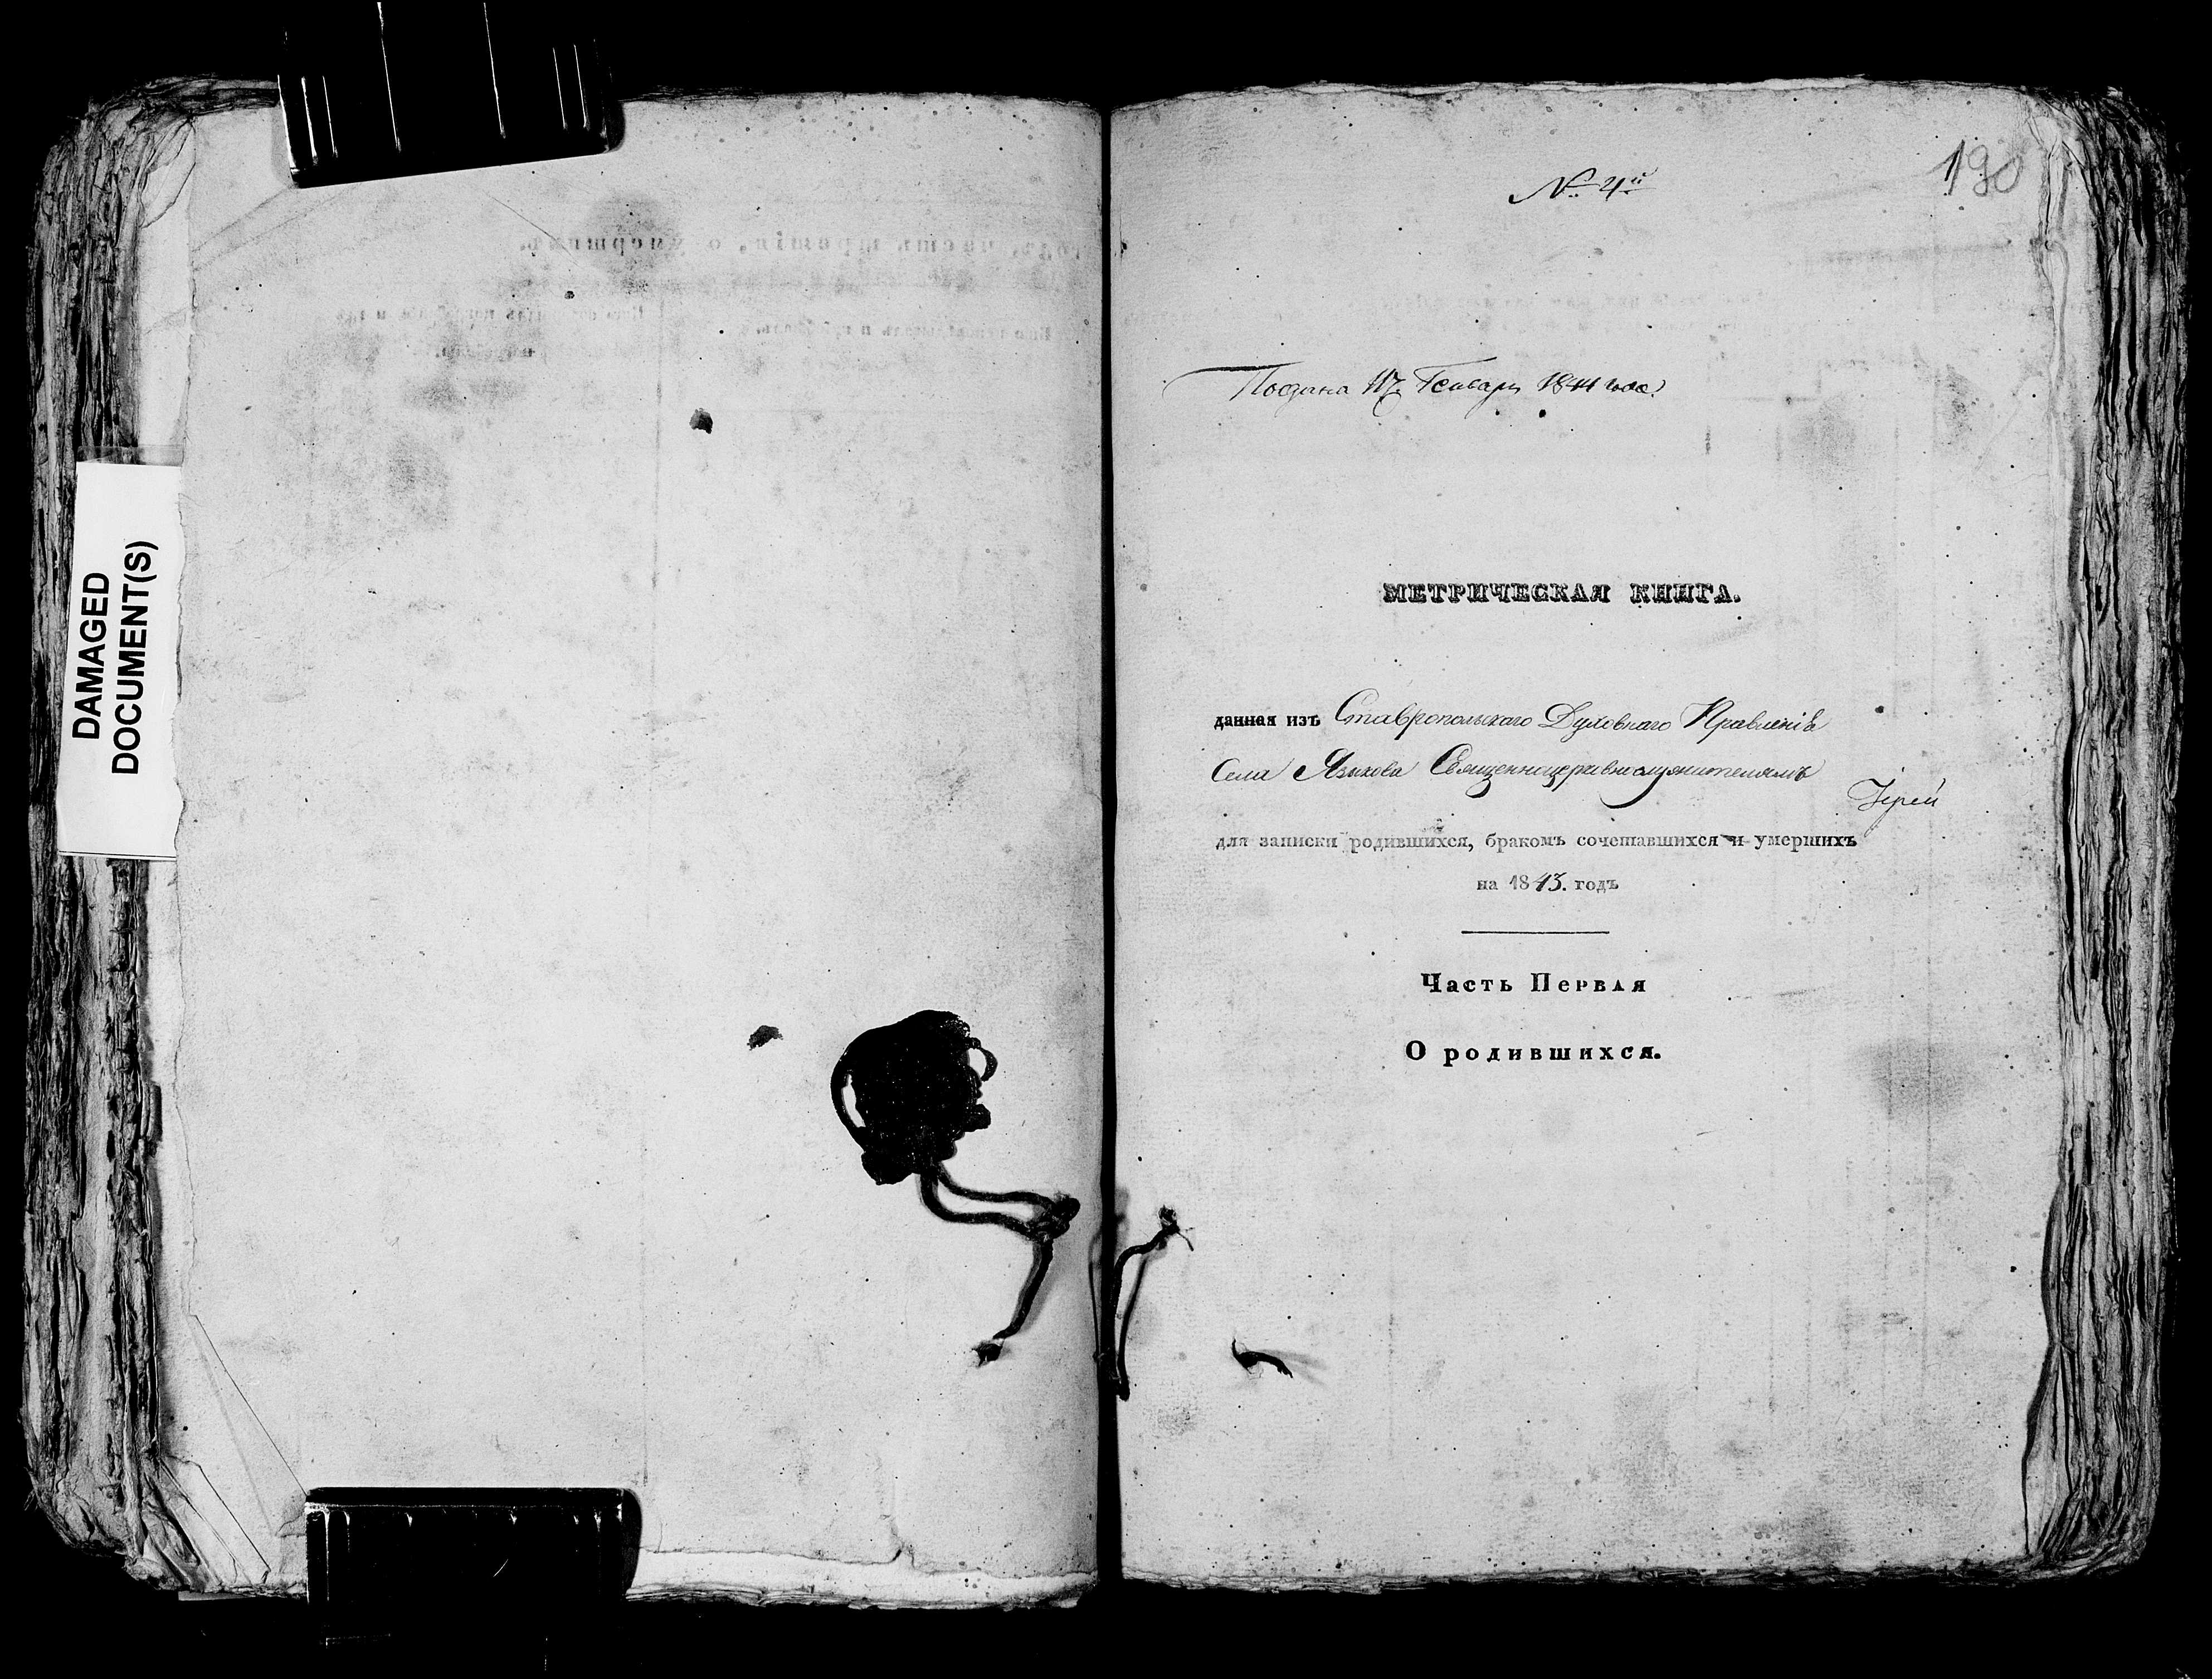 DAMAGED
DOCUMENT(S)
190
№ 4й
Подана 17 Генваря 1844 года
МЕТРИЧЕСКАЯ КНИГА.
данная изъ Ставропольскаго Духовнаго Правленія
Села Языкова Священноцерковнослужителямъ
Іерей
для записки родившихся, бракомъ сочетавшихся и умершихъ
на 1843. годъ
Часть Первая
О родившихся.